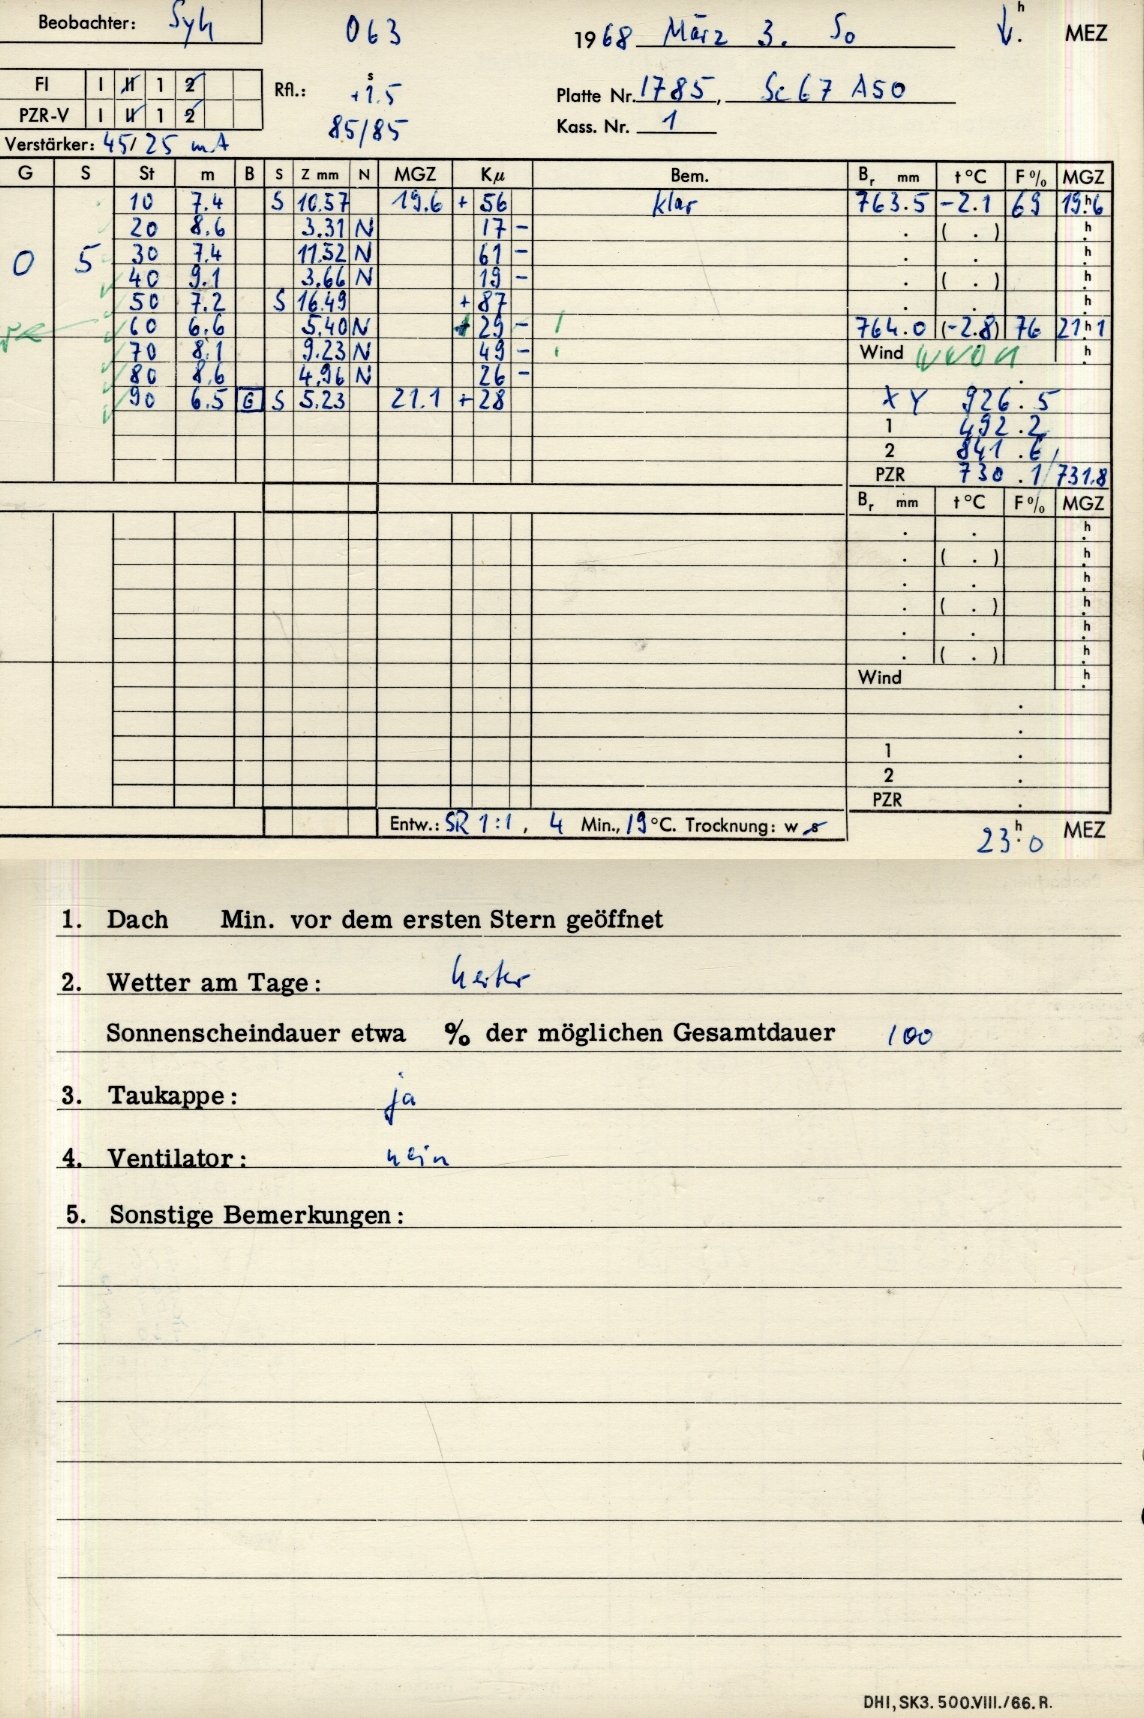 Beobachter: Syh 063 1968 März 3. So h MEZ
FI I II 1 2 Rfl.: s +1.5 Platte Nr. 1785, Sc 67 A50
PZR-V I II 1 2 85/85 Kass. Nr. 1
Verstärker: 45/25 mA
G S St m B S Z mm N MGZ Kμ Bem. Br mm t °C F % MGZ
10 7.4 S 10.57 19.6 + 56 klar 763.5 -2.1 69 19h.6
20 8.6 3.31 N 17 - . ( . ) h.
0 5 30 7.4 11.52 N 61 - . . h.
40 9.1 3.66 N 19 - . ( . ) h.
50 7.2 S 16.49 + 87 . . h.
60 6.6 5.40 N 29 - ! 764.0 (-2.8) 76 21h.1
70 8.1 9.23 N 49 - ! Wind h.
80 8.6 4.96 N 26 -
90 6.5 G S 5.23 21.1 + 28 XY 926.5
1 492.2
2 841.6
PZR 730.1/731.8
Br mm t °C F % MGZ
. . h.
. ( . ) h.
. . h.
. ( . ) h.
. . h.
. ( . ) h.
Wind h.
.
.
1 .
2 .
PZR .
Entw.: SR 1:1, 4 Min., 19 °C. Trocknung: w s
23h.0 MEZ
1. Dach Min. vor dem ersten Stern geöffnet
2. Wetter am Tage: heiter
Sonnenscheindauer etwa % der möglichen Gesamtdauer 100
3. Taukappe: ja
4. Ventilator: nein
5. Sonstige Bemerkungen:
DHI, SK3. 500.VIII./66. R.